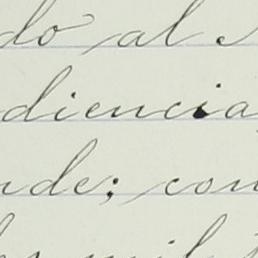 do al
diencia
nde; con